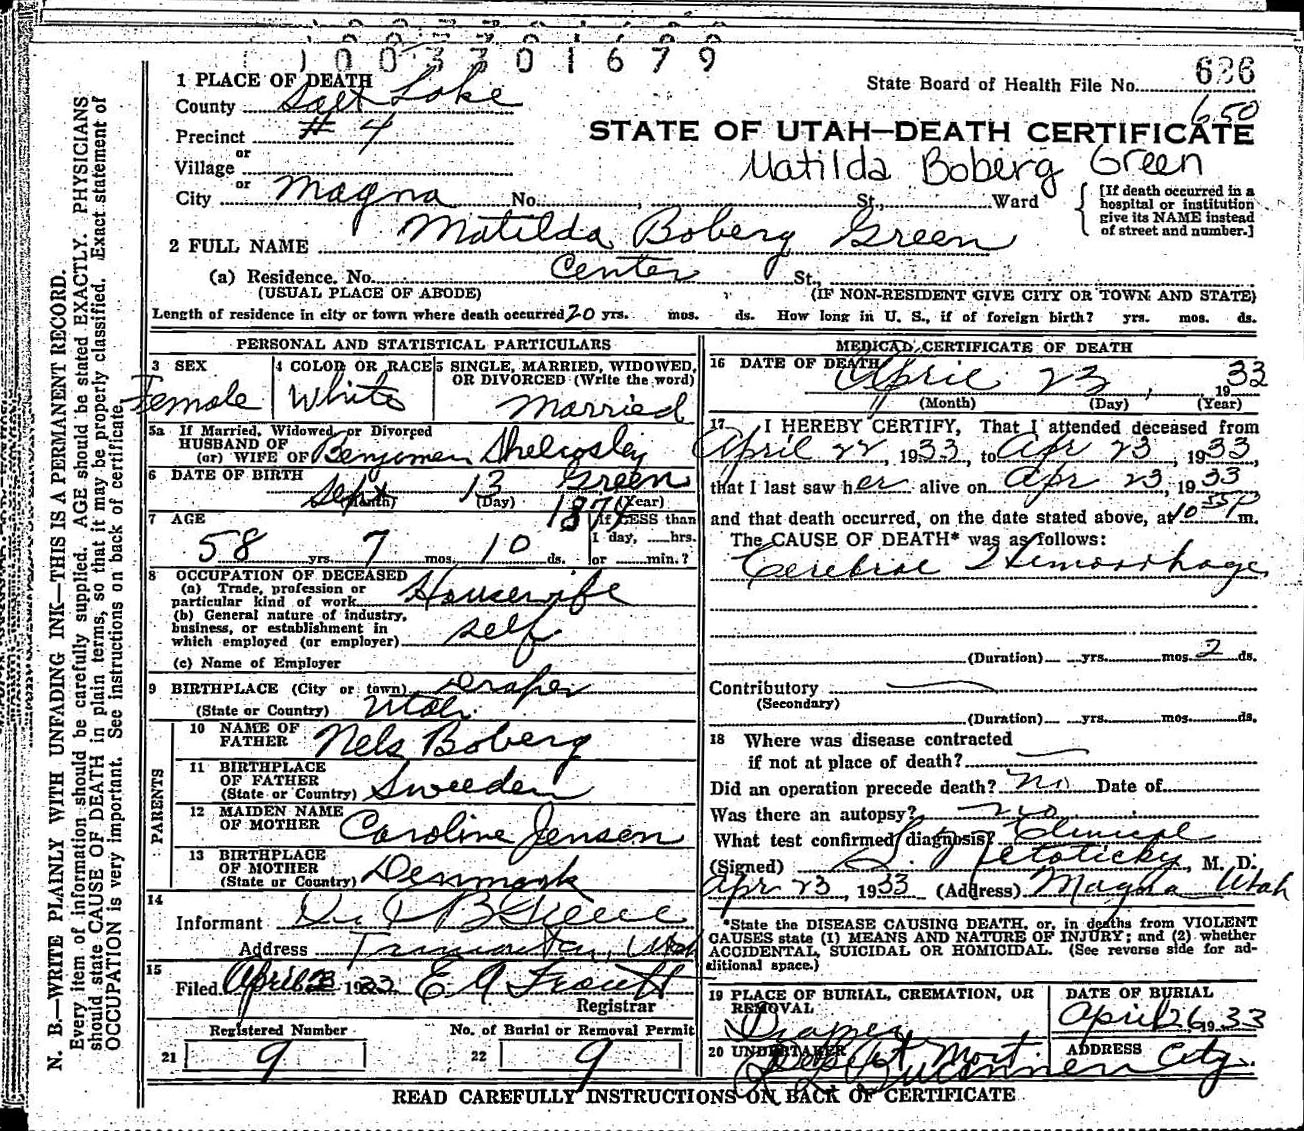 1 0 0 3 3 0 1 6 7 9
1 PLACE OF DEATH
State Board of Health File No. 626
650
County Salt Lake
Precinct # 4
STATE OF UTAH—DEATH CERTIFICATE
or
Village
Matilda Boberg Green
or
City Magna No. , St., Ward
[If death occurred in a hospital or institution give its NAME instead of street and number.]
2 FULL NAME Matilda Boberg Green
(a) Residence. No. Center St.,
(USUAL PLACE OF ABODE) (IF NON-RESIDENT GIVE CITY OR TOWN AND STATE)
Length of residence in city or town where death occurred 20 yrs. mos. ds. How long in U. S., if of foreign birth? yrs. mos. ds.
PERSONAL AND STATISTICAL PARTICULARS
3 SEX
Female
4 COLOR OR RACE
White
5 SINGLE, MARRIED, WIDOWED, OR DIVORCED (Write the word)
Married
5a If Married, Widowed, or Divorced
HUSBAND OF
(or) WIFE OF Benjamen Shelrosley
Green
6 DATE OF BIRTH
Sept 13 1874
(Month) (Day) (Year)
7 AGE
58 yrs. 7 mos. 10 ds.
If LESS than
1 day, hrs.
or min.?
8 OCCUPATION OF DECEASED
(a) Trade, profession or
particular kind of work Housewife
(b) General nature of industry,
business, or establishment in
which employed (or employer) self
(c) Name of Employer
9 BIRTHPLACE (City or town) Draper
(State or Country) Utah.
PARENTS
10 NAME OF FATHER Nels Boberg
11 BIRTHPLACE OF FATHER (State or Country) Sweeden
12 MAIDEN NAME OF MOTHER Caroline Jensen
13 BIRTHPLACE OF MOTHER (State or Country) Denmark
14
Informant
Address Tremonton, Utah
15
Filed April 23 1933 E A
Registrar
Registered Number
21 9
No. of Burial or Removal Permit
22 9
MEDICAL CERTIFICATE OF DEATH
16 DATE OF DEATH
April 23, 1933
(Month) (Day) (Year)
17 I HEREBY CERTIFY, That I attended deceased from
April 22, 1933, to Apr 23, 1933,
that I last saw her alive on Apr 23, 1933
and that death occurred, on the date stated above, at 10 55 P m.
The CAUSE OF DEATH* was as follows:
Cerebral Hemorrhage
(Duration) yrs. mos. 2 ds.
Contributory
(Secondary)
(Duration) yrs. mos. ds.
18 Where was disease contracted
if not at place of death?
Did an operation precede death? No Date of
Was there an autopsy? no
What test confirmed diagnosis? Clinical
(Signed) , M. D.
Apr 23, 1933 (Address) Magna Utah
*State the DISEASE CAUSING DEATH, or, in deaths from VIOLENT
CAUSES state (1) MEANS AND NATURE OF INJURY; and (2) whether
ACCIDENTAL, SUICIDAL OR HOMICIDAL. (See reverse side for ad-
ditional space.)
19 PLACE OF BURIAL, CREMATION, OR REMOVAL
Draper
DATE OF BURIAL
April 26, 1933
20 UNDERTAKER
Mort.
ADDRESS City.
READ CAREFULLY INSTRUCTIONS ON BACK OF CERTIFICATE
N. B.—WRITE PLAINLY WITH UNFADING INK—THIS IS A PERMANENT RECORD.
Every item of information should be carefully supplied. AGE should be stated EXACTLY. PHYSICIANS
should state CAUSE OF DEATH in plain terms, so that it may be properly classified. Exact statement of
OCCUPATION is very important. See instructions on back of certificate